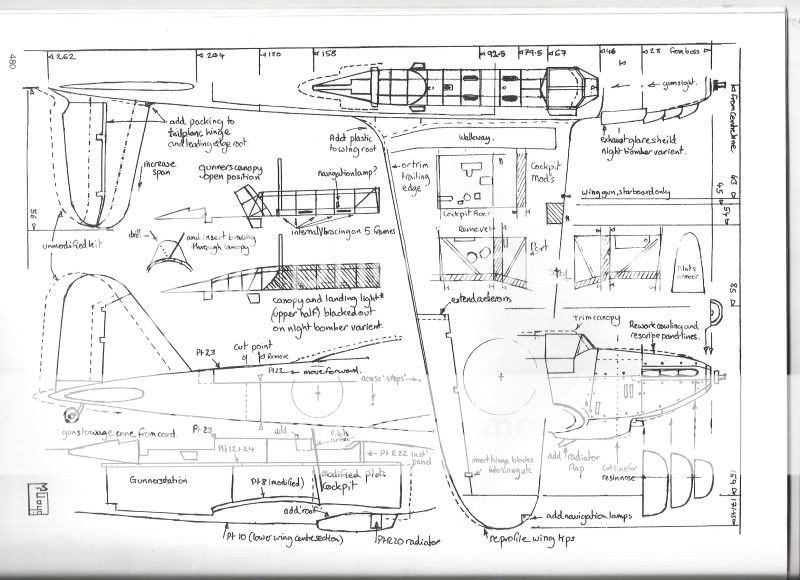 262
204
180
158
92.5
79.5
67
46
28
from boss
480
gunsight.
from centre line
add packing to
tailplane hinge
and leading edge root
increase
span
Add plastic
to wing root
Walkway.
exhaust glare sheild
night bomber varient.
gunners canopy
open position
navigation lamp?
or trim
trailing
edge
Cockpit
Mods
Cockpit floor
wing gun, starboard only
43
45
54
36
unmodified kit
drill
and insert bracing
through canopy
internal bracing on 5 frames
Removes
Port
Stbd
Pilots
armour
85
canopy and landing light*
(upper half) blacked out
on night bomber varient.
extend aelerons
Trim canopy
Rework cowling and
rescribe panel lines.
cut point
Pt 23
Remove
Pt 23
move forward.
access 'steps'
gun stowage cone from card.
Pt 23
add
Pilots
armour
Pt 12+24
Pt R22 Inst'
panel
Gunners station
Pt 8 (modified)
Modified pilots
Cockpit
add 'roof'
Pt 10 (lower wing centre section)
Pt R20 radiator
insert hinge blocks
add radiator
flap
Cut line for
resin nose
add navigation lamps
reprofile wing tips